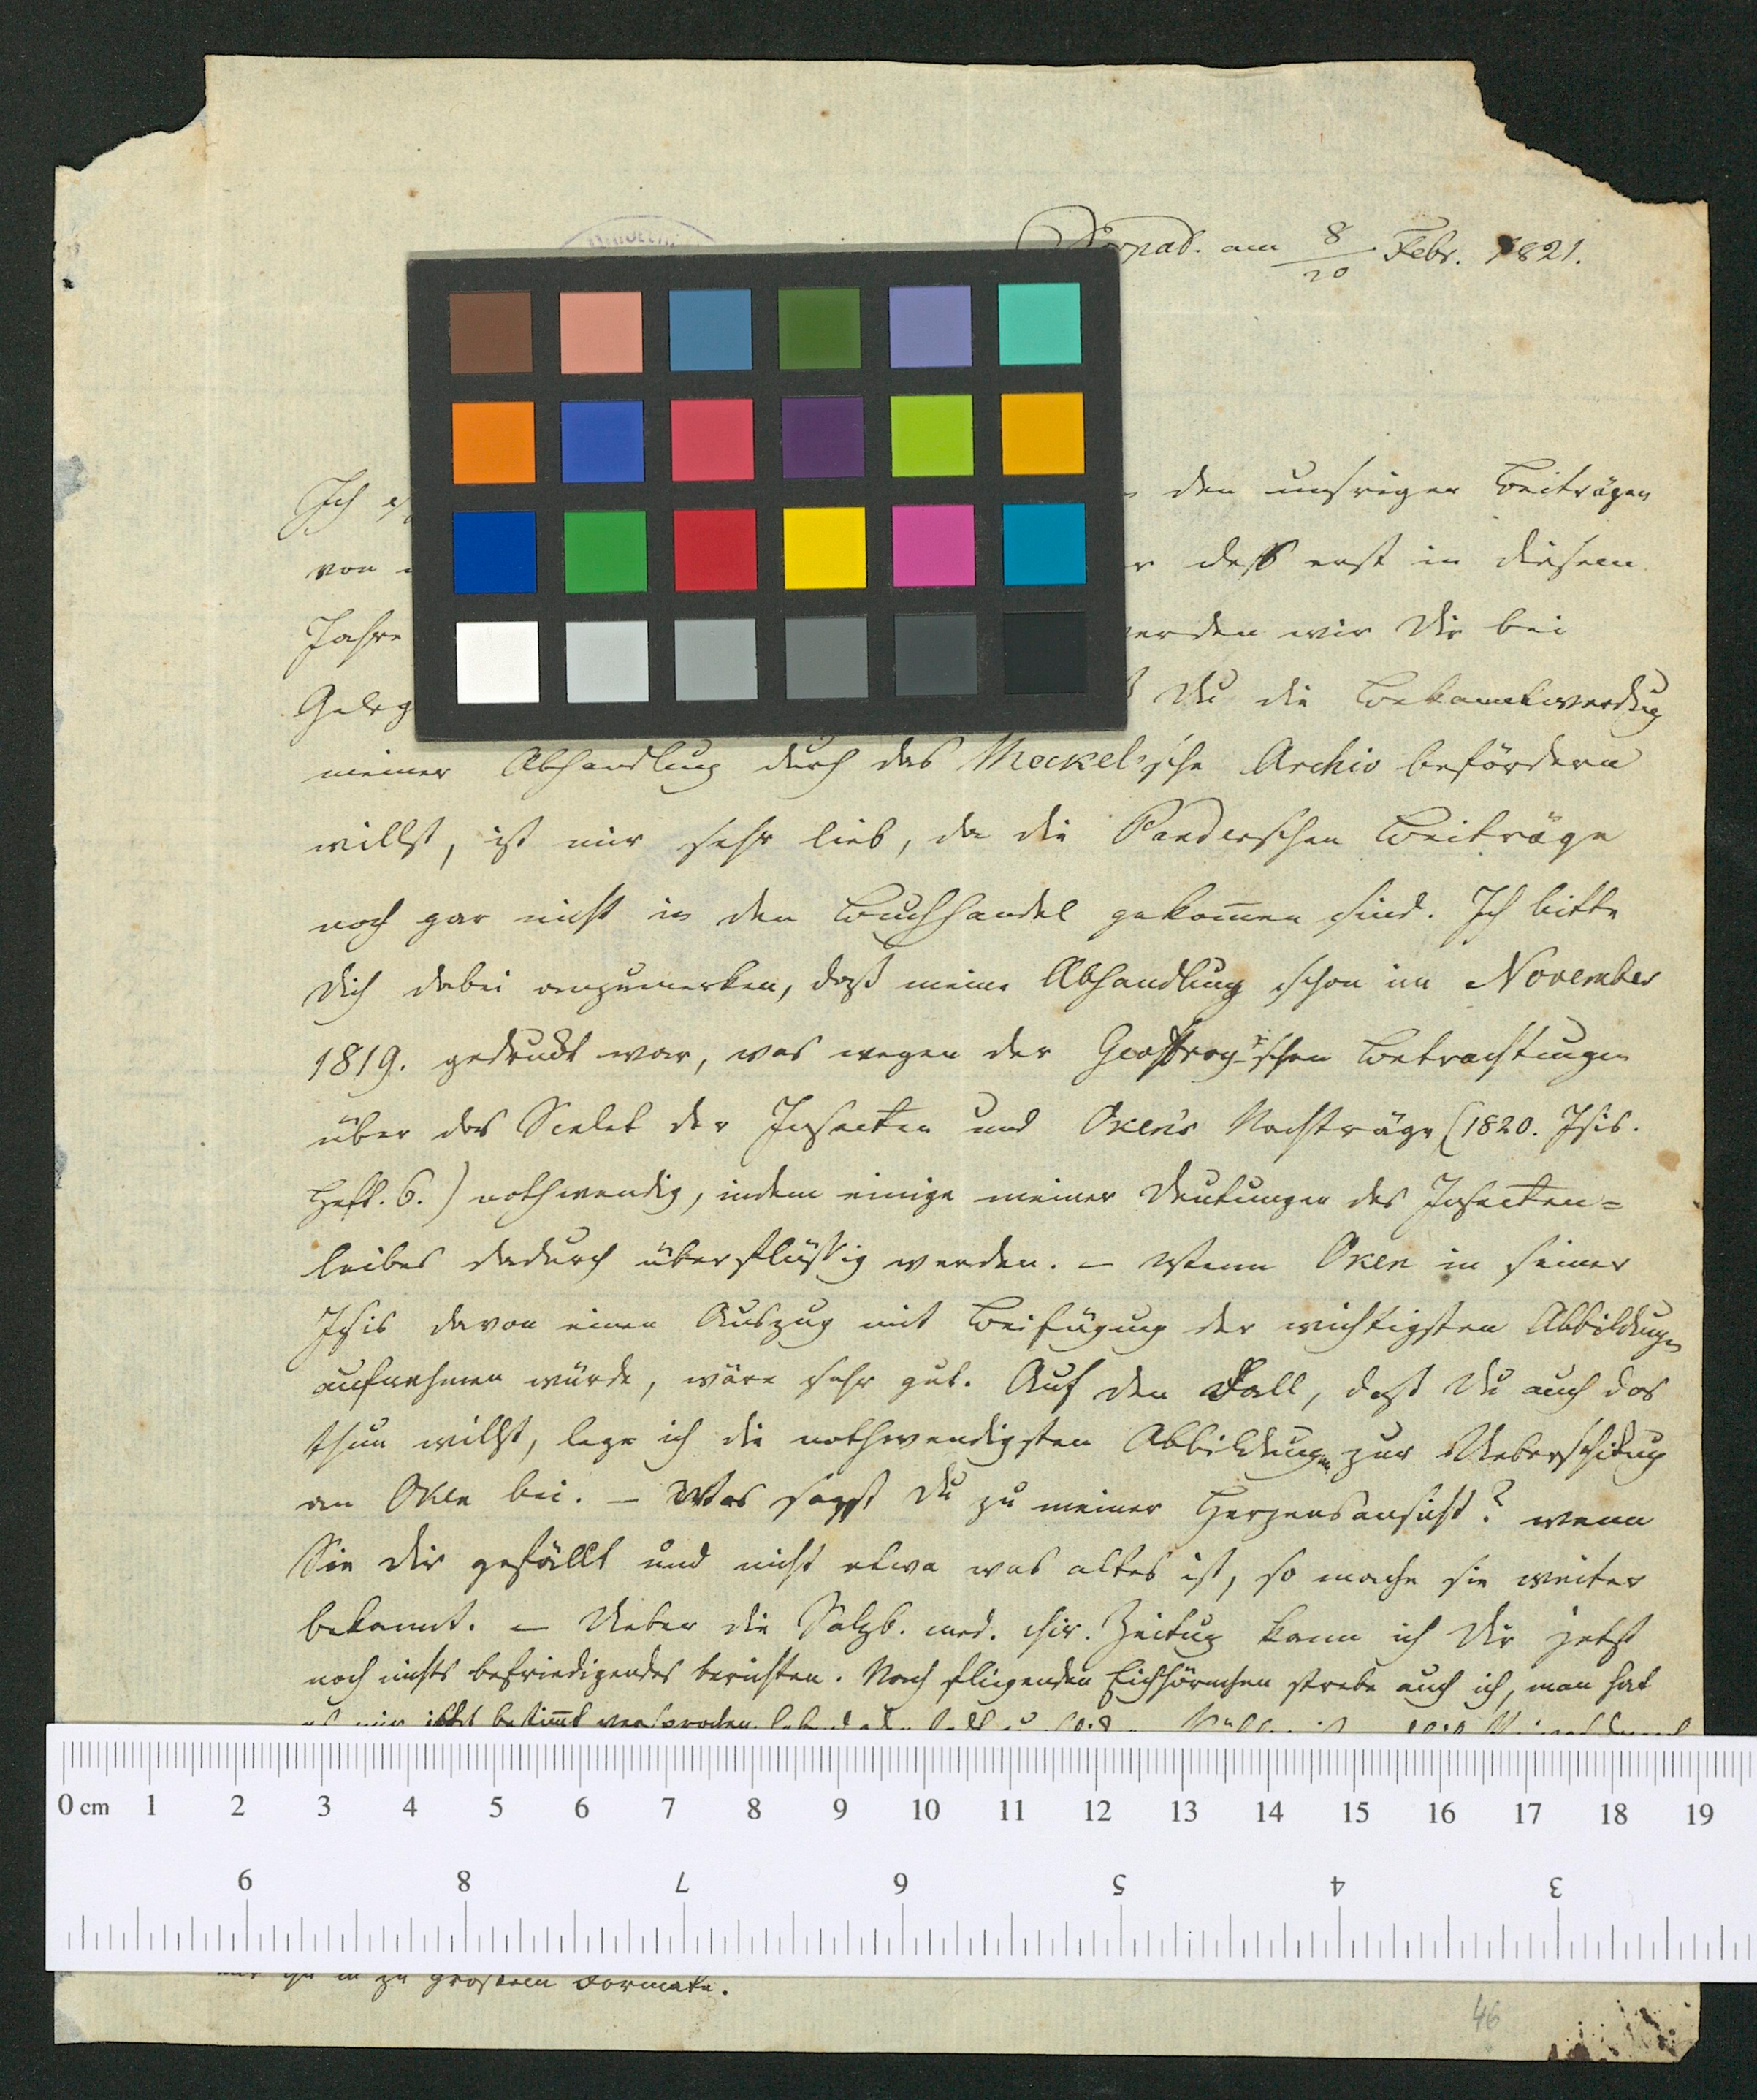 Dorpat. am 8/20 Febr. 1821.
Ich den unsrigen Beiträgen
von dess erst in diesem
Jahre werden wir Dir bei
Geleg Du die Bekanntwerdung
meiner Abhandlung durch das Meckel'sche Archiv befördern
willst, ist mir sehr lieb, da die Panderschen Beiträge
noch gar nicht in den Buchhandel gekom̄en sind. Ich bitte
Dich dabei anzumerken, daß meine Abhandlung schon im November
1819. gedruckt war, was wegen der Geoffroy'schen Betrachtungen
über das Scelet der Insecten und Oken's Nachträge (1820. Isis.
Heft. 6.) nothwendig, indem einige meiner Deutungen des Insecten=
leibes dadurch überflüssig werden. – Wenn Oken in seiner
Isis davon einen Auszug mit Beifügung der wichtigsten Abbildungen
aufnehmen würde, wäre sehr gut. Auf den Fall, daß Du auch das
thun willst, lege ich die nothwendigsten Abbildungen zur Ueberschickung
an Oken bei. – Was sagst Du zu meiner Herzensansicht? wenn
Sie Dir gefällt und nicht etwa was altes ist, so mache sie weiter
bekannt. – Ueber die Salzb. med. chir. Zeitung kann ich Dir jetzt
noch nichts befriedigendes berichten. Nach fliegenden Eichhörnchen strebe auch ich, man hat
es mir jetzt bestim̄t versprochen
0 cm 1 2 3 4 5 6 7 8 9 10 11 12 13 14 15 16 17 18 19
9 8 7 6 5 4 3
in zu großem Formate.
46